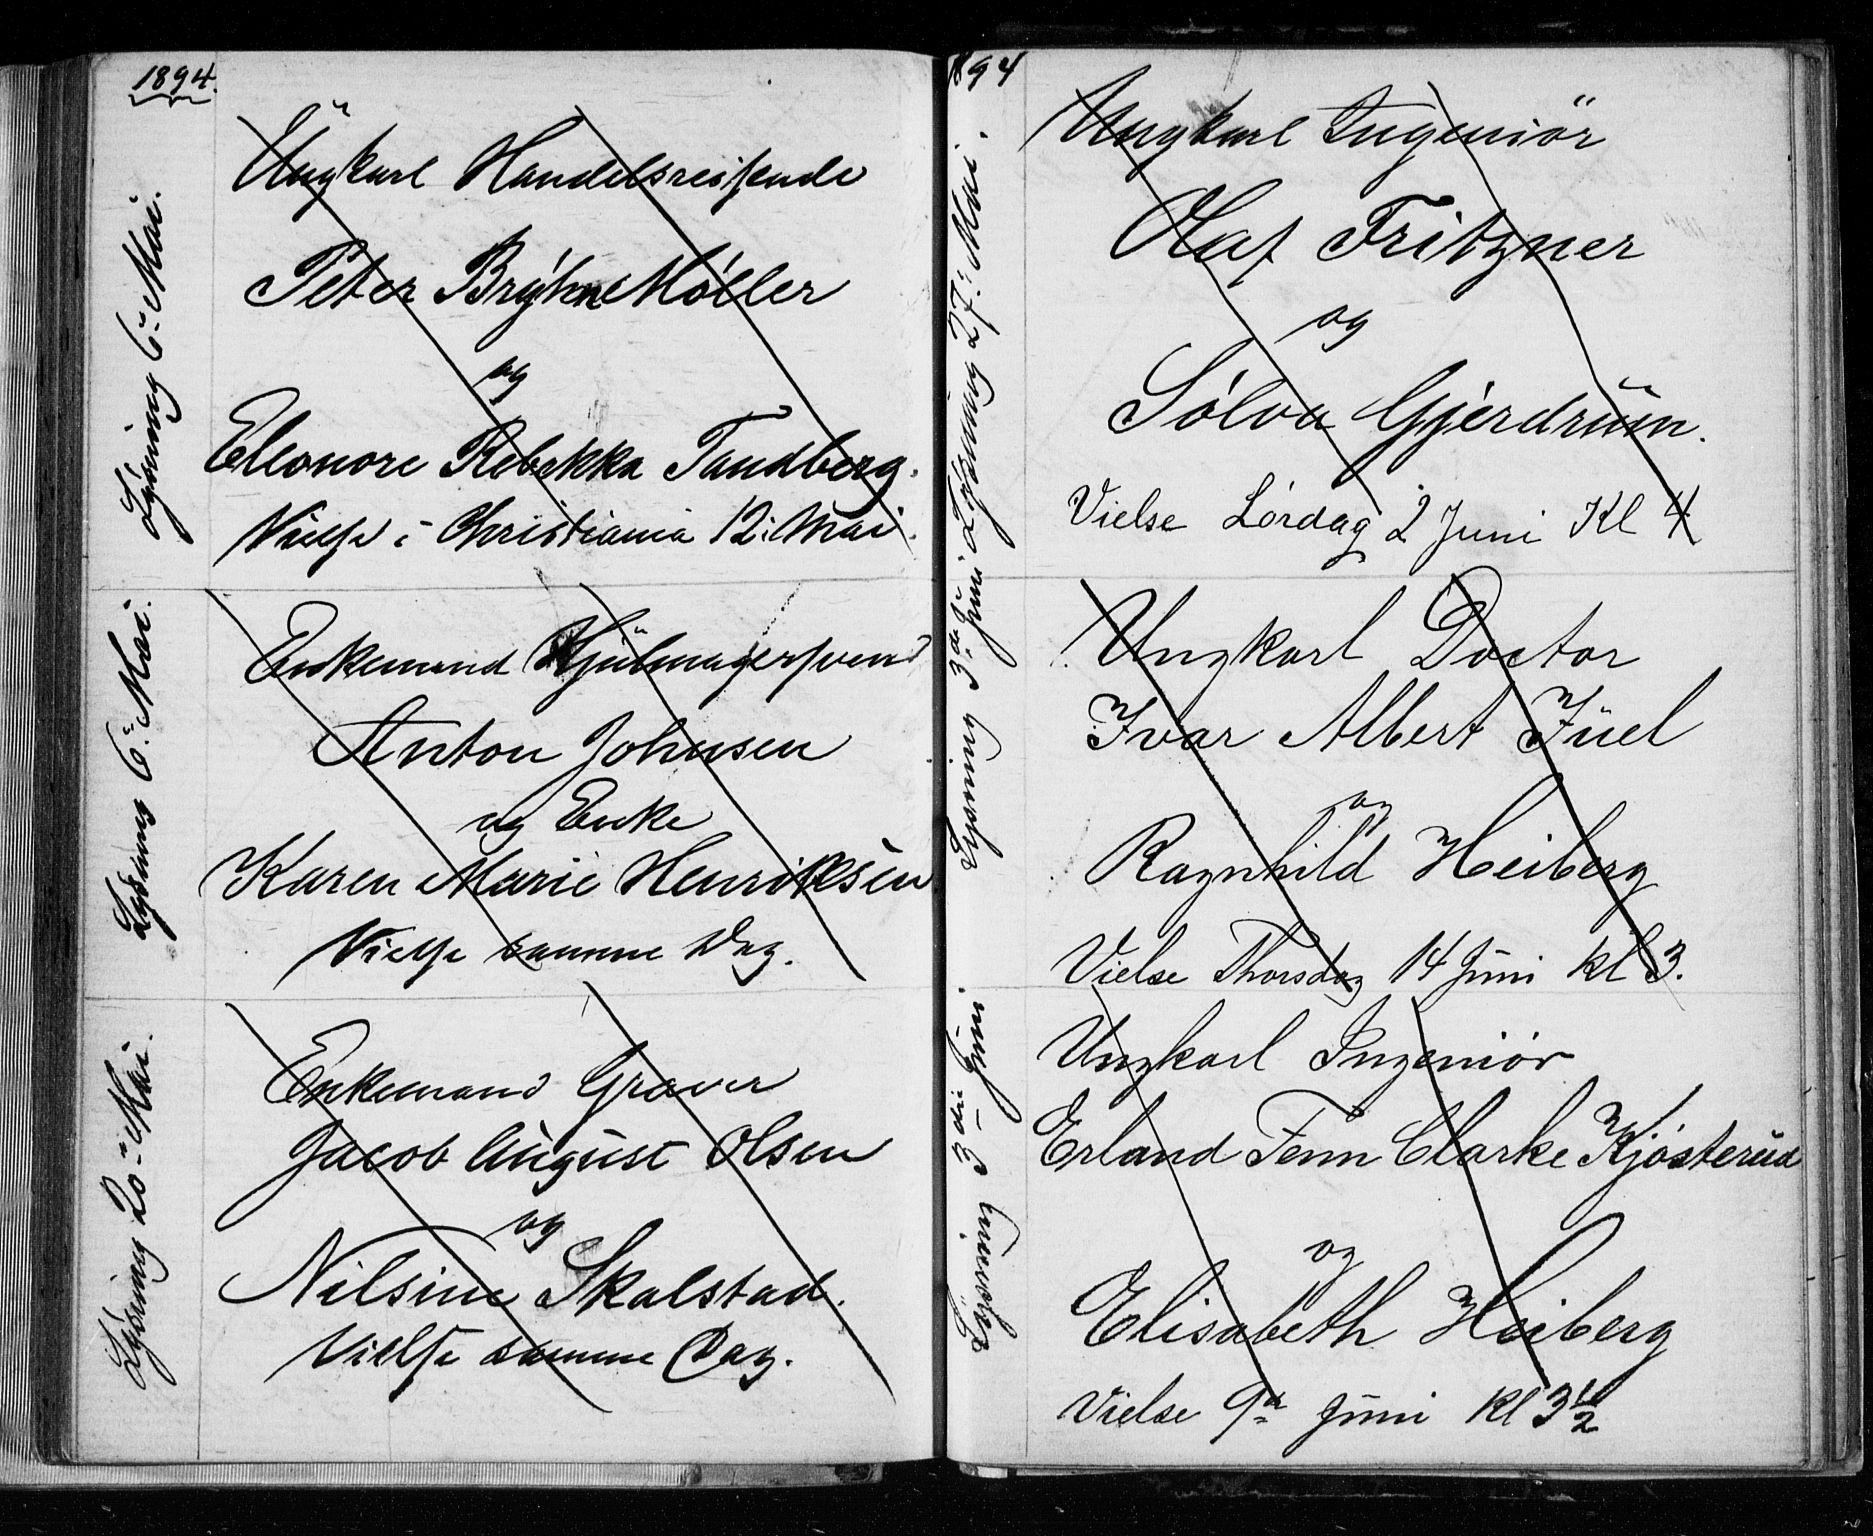 1894.
Lysning 6. Mai.
Ungkarl Handelsreisende
Peter Bryhn Møller
og
Eleonore Rebekka Tandberg.
Vielse i Christiania 12. Mai.
Lysning 6. Mai.
Enkemand Hjulmagersvend
Anton Johnsen
og Enke
Karen Marie Henriksen
Vielse samme Dag.
Lysning 20. Mai.
Enkemand Graver
Jacob August Olsen
og
Nilsine Skalstad.
Vielse samme Dag.
1894
Lysning 27. Mai.
Ungkarl Ingeniör
Olaf Fritzner
og
Sólva Gjerdrum.
Vielse Lórdag 2 Juni Kl 4
Lysning 3de Juni
Ungkarl Doctor
Ivar Albert Juel
og
Ragnhild Heiberg
Vielse Thorsdag 14 Juni kl 3.
Lysning 3die Juni.
Ungkarl Ingeniór
Erland Fenn Clarke Kjósterud
og
Elisabeth Heiberg
Vielse 9de Juni Kl 3½